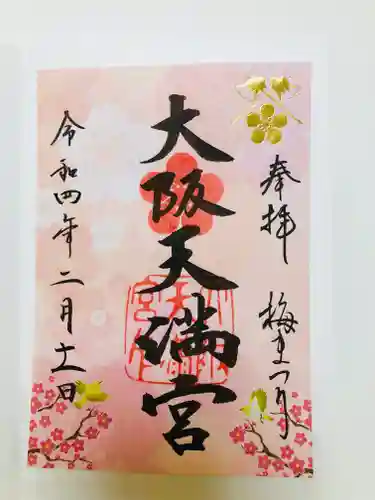 奉拝 梅まつり
大阪天満宮
令和四年二月十一日